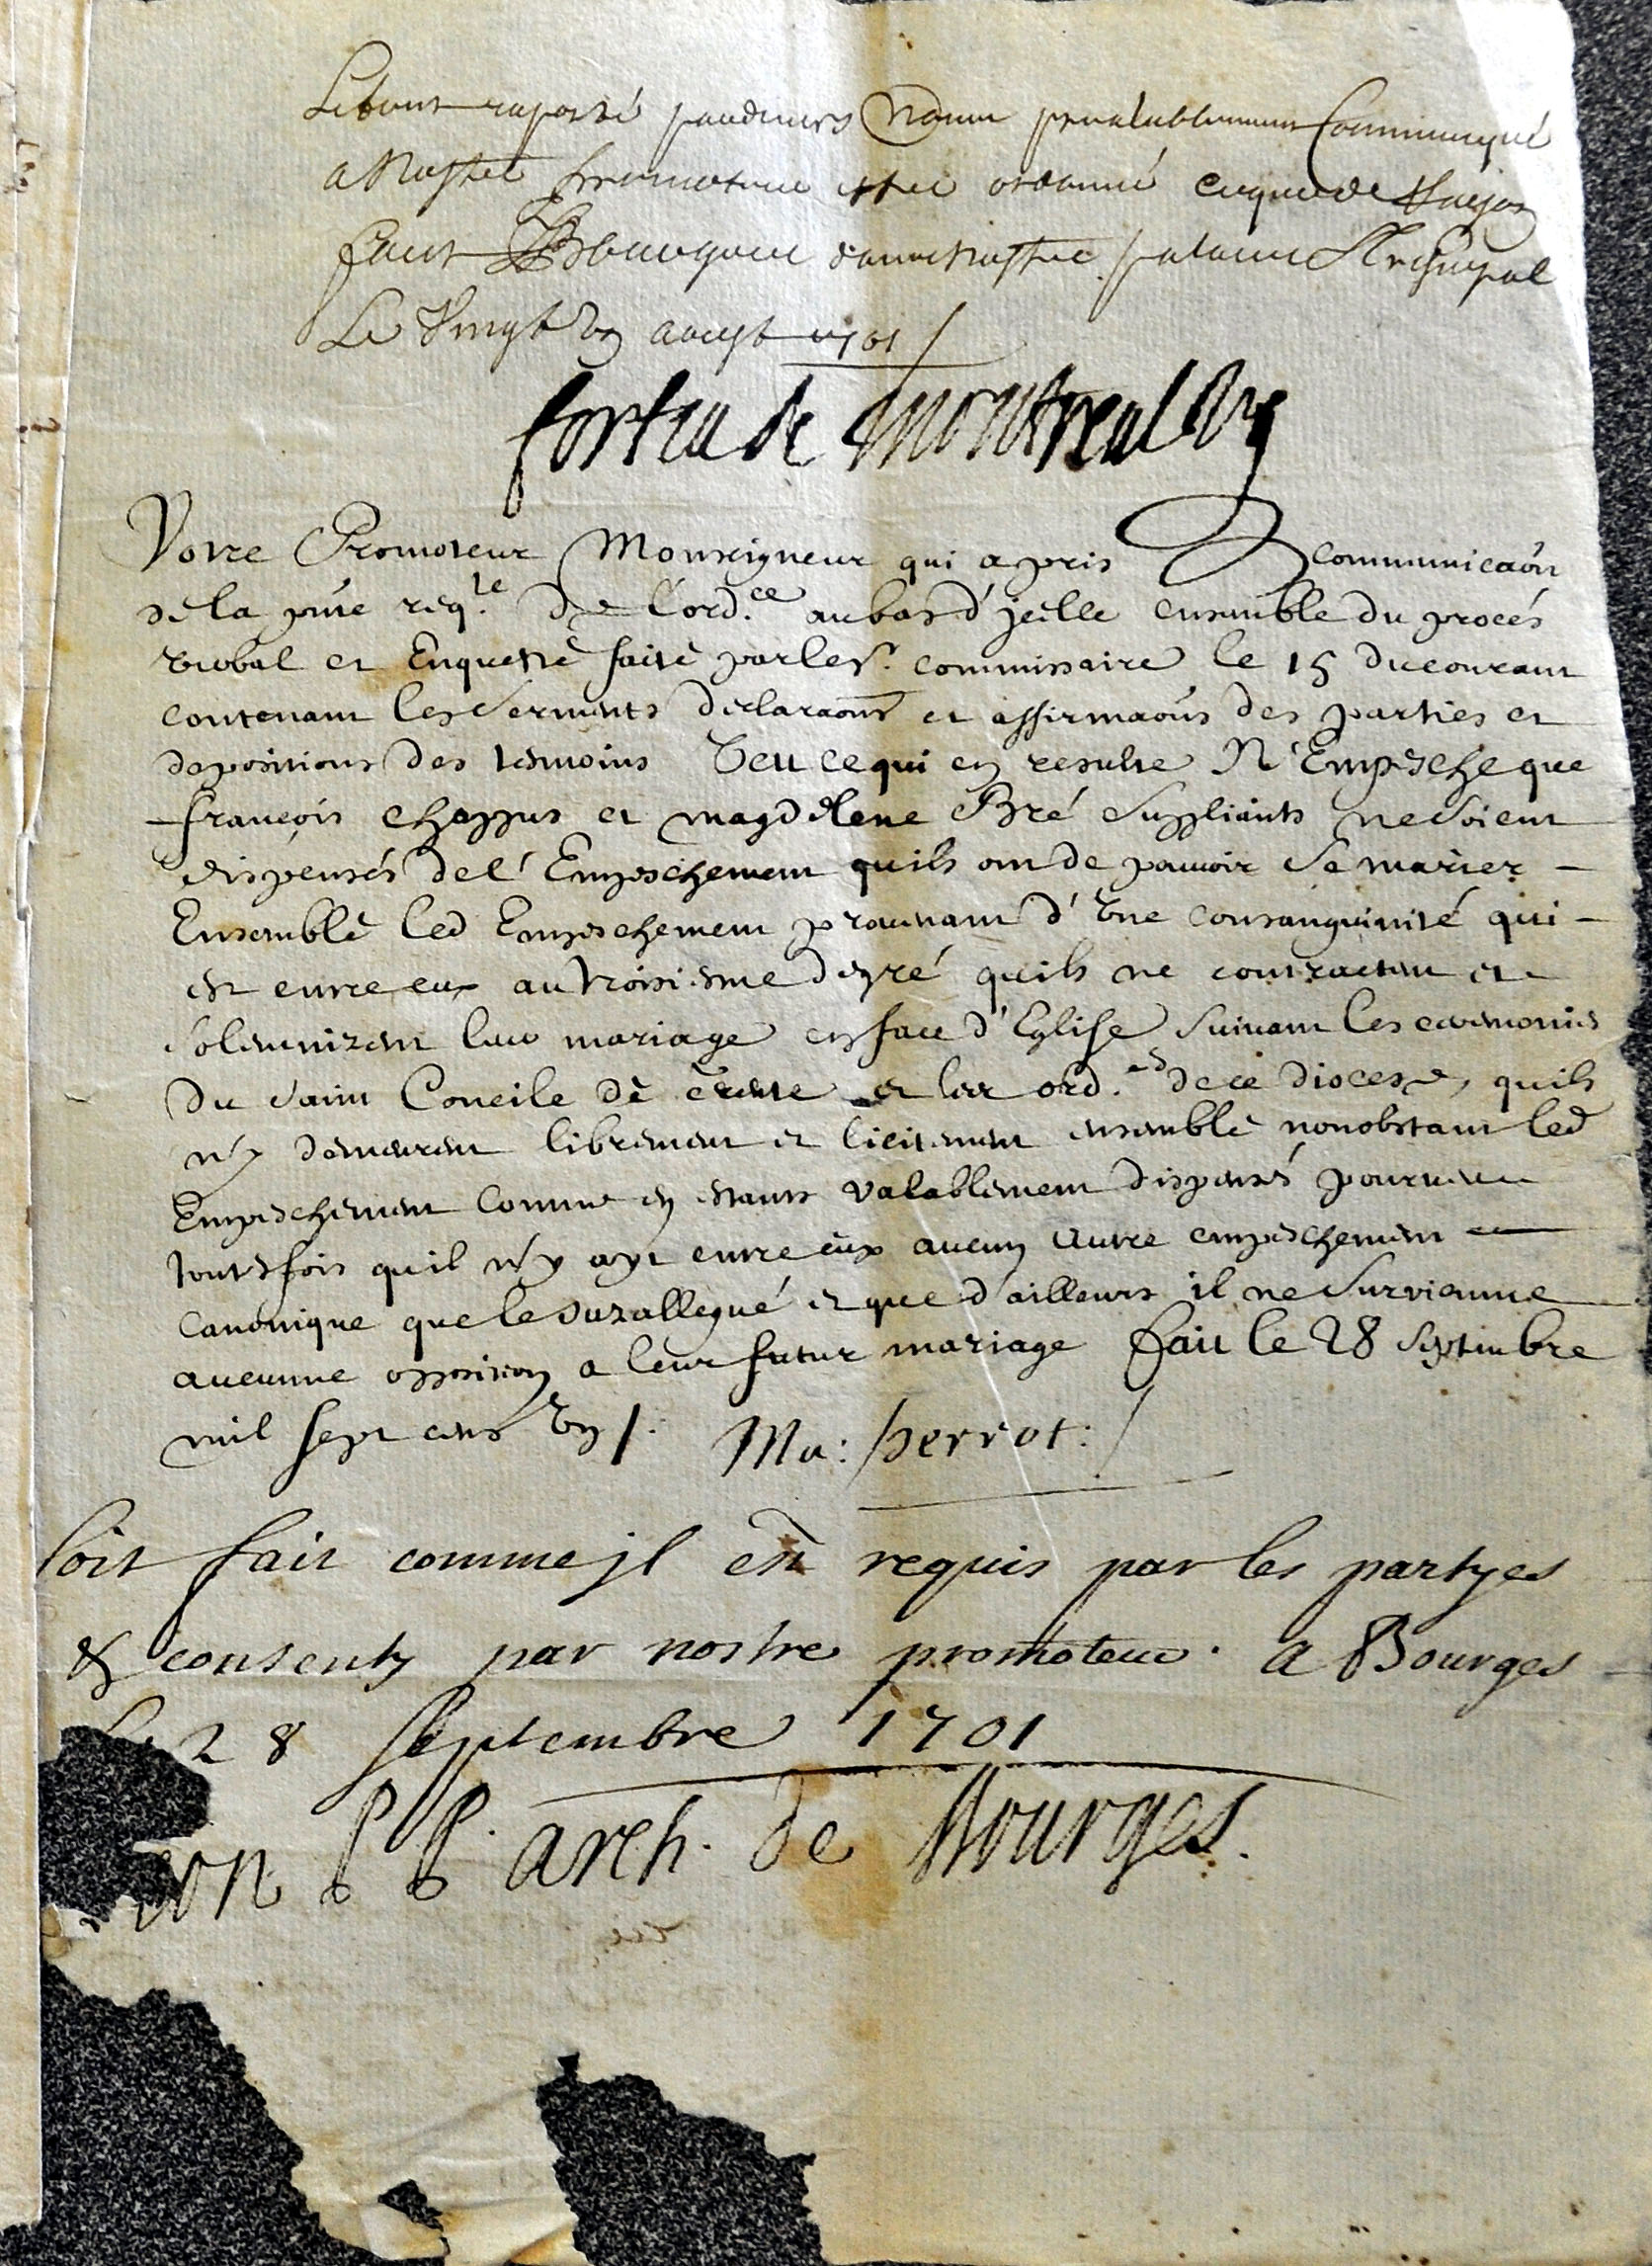 Le tout raporté pardevers Nous prealablement Communiqué
a Nostre promoteur estre ordonné ce que de Raison
faict a Bourges dans nostre palais Archiepal
Le Vingt Un aoust 1701 /
fortia de Montreal
Votre Promoteur Monseigneur qui a pris communicaōn
de la pnte reqte De l'ordce au bas d'jcelle ensemble du procés
verbal et Enquestè faitè par le sr commissaire le 15 du courant
contenant les serments declaraōns et affirmaōns des parties et
depositions des temoins Veu ce qui en resulte N'Empesche que
francois chappus et magdelene Bré suppliants ne soient
dispensés de l'Empeschement quils ont de pouvoir se marier
Ensemblè led Empeschement prouenant d'Vne consanguinité qui
est entre eux au troisiesme degré quils ne contractent et
solemnizent leur mariage en face d'Eglise suivant les ceremonies
du saint Concile dè trente et les ordes de ce diocese, quils
n'y demeurent librement et licitement ensemblè nonobstant led
Empeschement comme en estants valablement dispensés pourveu
toutesfois qu'il n'y ayt entre eux aucun autre empeschement
canonique que le susallegué et que d'ailleurs il ne survienne
aucunne opposition a leur futur mariage fait le 28 septembre
mil sept cens Vn /. Ma: perrot:/
soit fait comme jl est requis par les partyes
& consenty par nostre promoteur. a Bourges
28 septembre 1701
P P. arch. de Bourges.